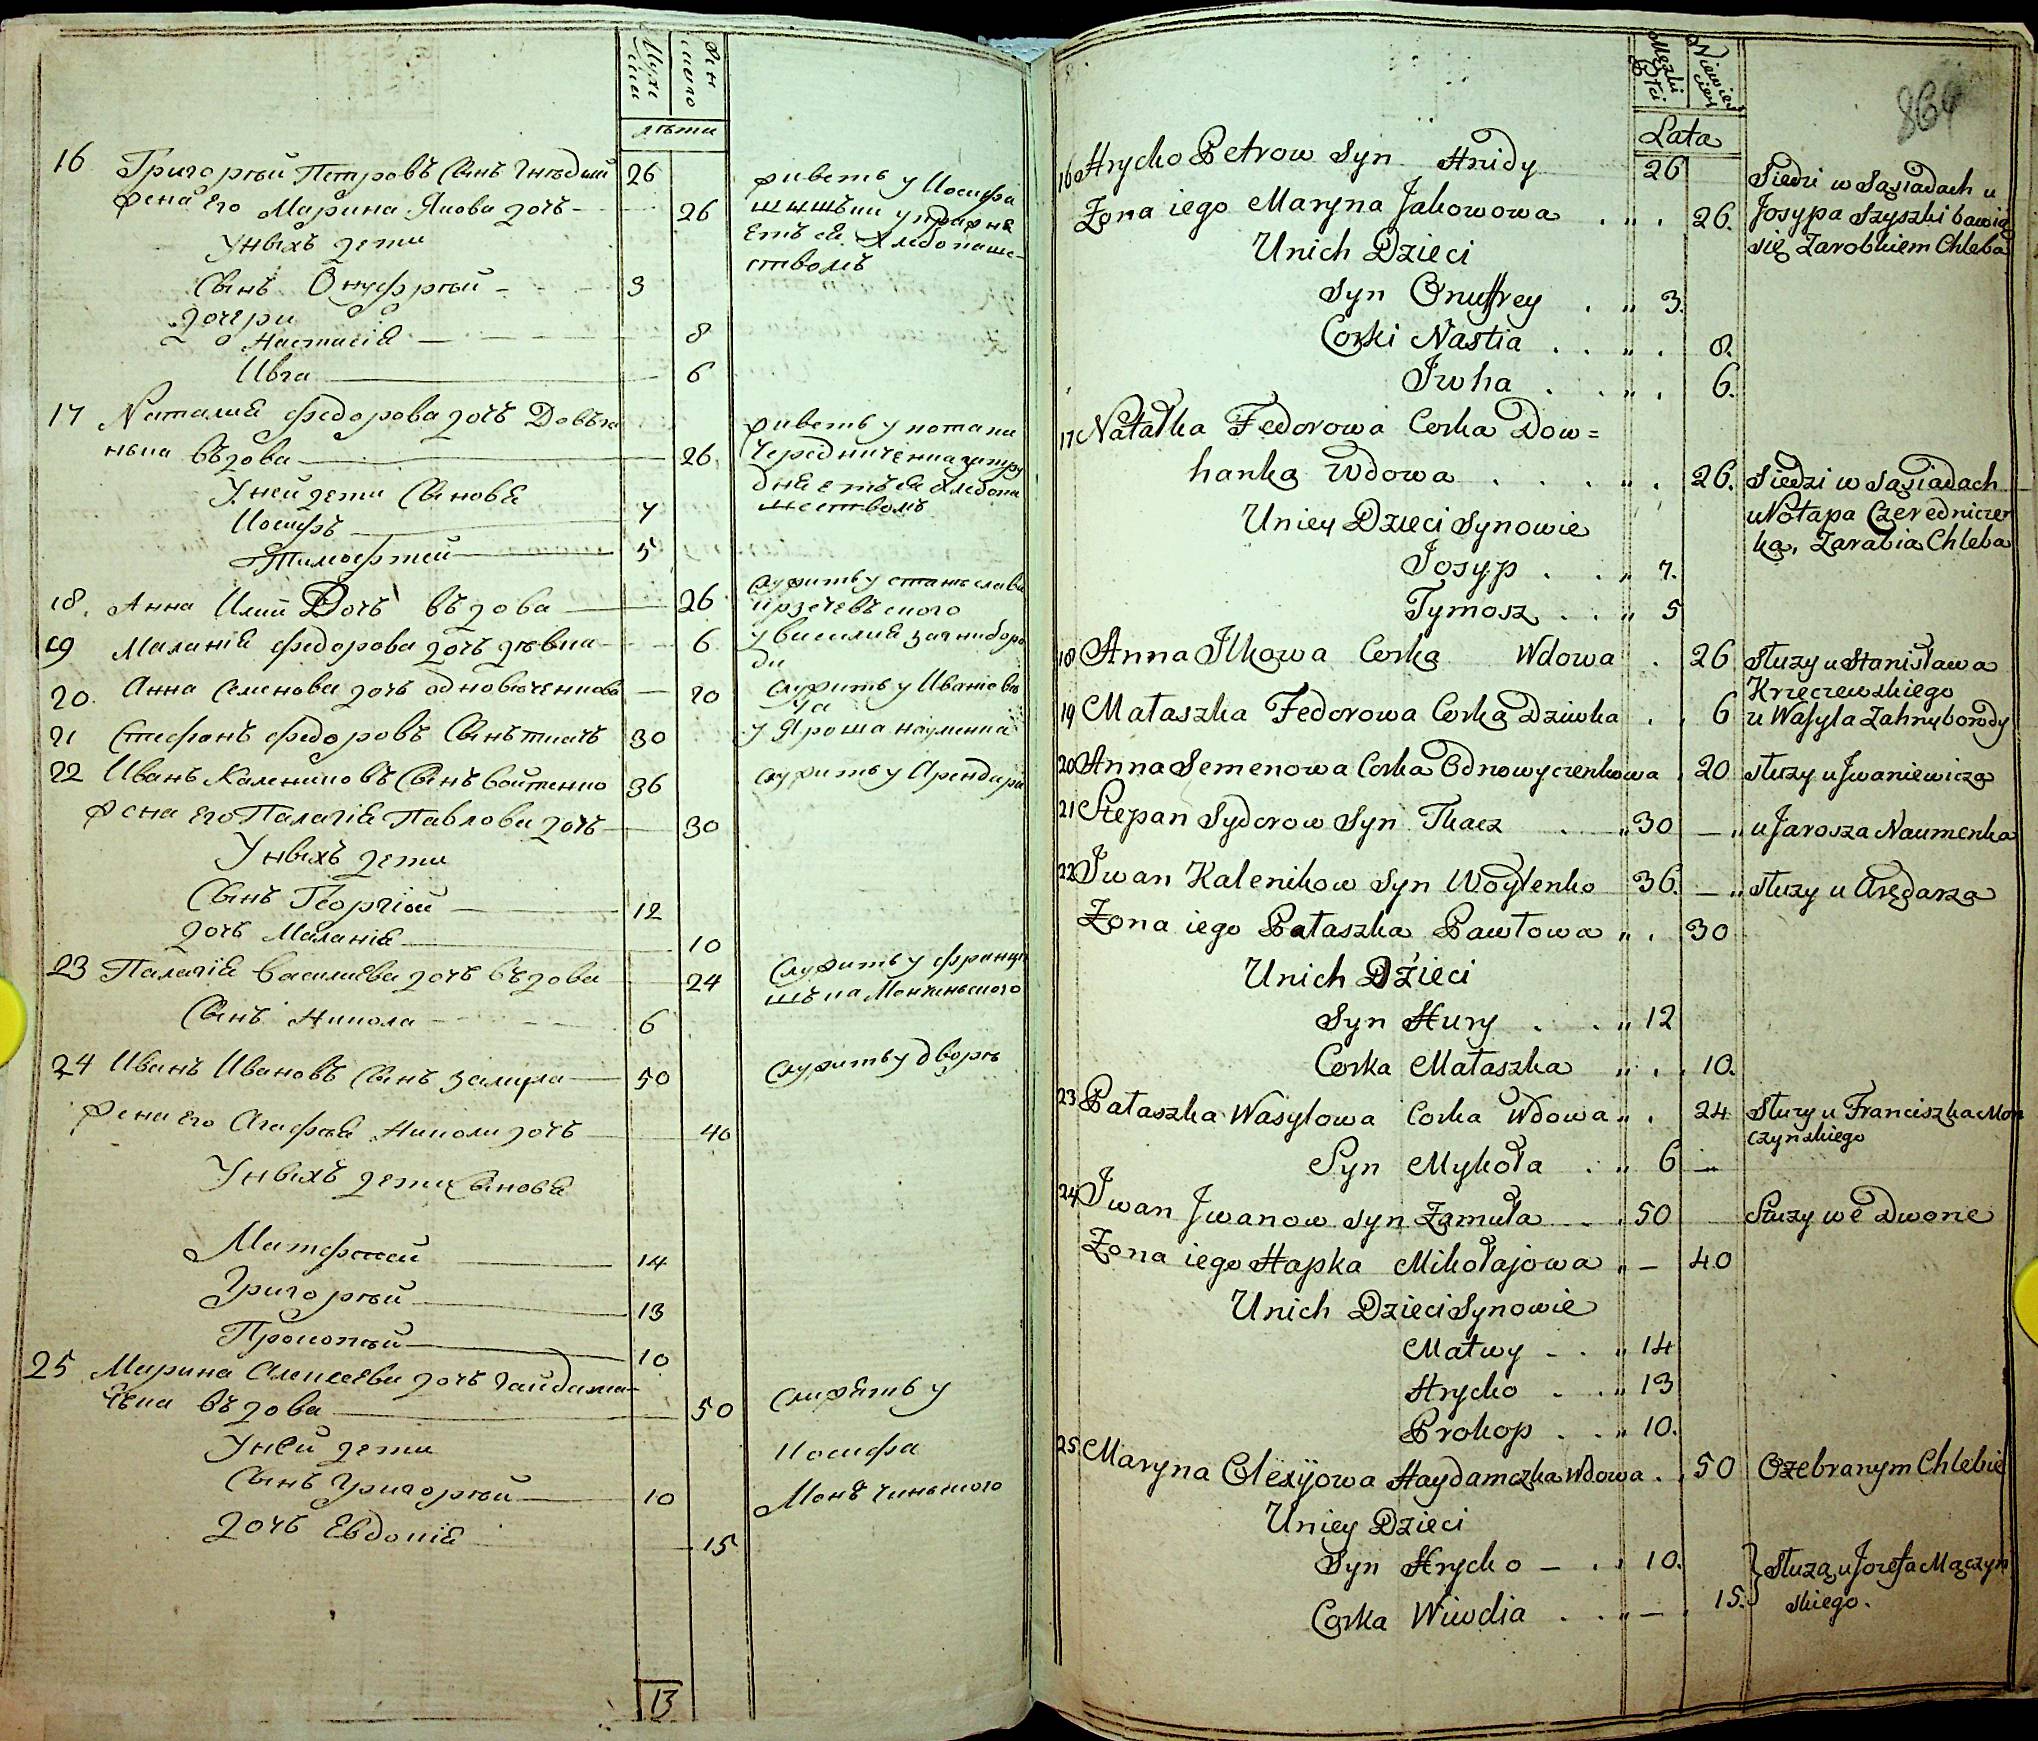 Мужеска
Женскаго
лѣти
16 Григорѣй Петровъ Сынъ Гнѣдый 26 живетъ у Иосифа
жена Его Марина Якова дочь 26 шишъки упражня
Уныхъ дети етъся Хлебопаше
ством
Сынъ Онуфрѣй 3
дочери
Настасія 8
Ивга 6
17 Наталия Федорова дочь Довъга живетъ у потапа
нъка въдова 26 Чередниченка
Уней дети Сыновя
Иосифъ 7
Тимофтей 5
18. Анна Дочь въдова 26 служитъ у станислава
19 Маланія Федорова дочь девка 6 у василия загнибаро
ди
20. Анна Семенова дочь одновюченкова 20 служитъ у Иваневи
ча
21 Стефанъ Федоровъ Сынъ ткачъ 30 у Яроша науменка
22 Иванъ Калениковъ Сынъ войтенко 36 служитъ у Арендара
жена Его Палагія Павлова дочь 30
Уныхъ дети
Сынъ Георгіой 12
дочь Маланія 10
23 Палагія василиева дочь въдова 24 служитъ у Франци
шъка Мончинъского
Сынъ Никола 6
24 Иванъ Ивановъ Сынъ замула 50 служитъ у дворѣ
жена его Агафія Николи дочь 40
Уныхъ дети Сыновя
Матфей 14
Григорѣй 13
Прокопѣй 10
25 Марина Алексеева дочь гайдама
чъка въдова 50 служатъ у
Уней дети Иосифа
Сынъ Григорѣй 10 Монъчинъского
дочь Евдокія 15
13
Męzki Płci
Niewiesciey
864
Lata
16 Hrycko Petrow Syn Hnidy 26 Siedzi w Sąsiadach u
Żona iego Maryna Jakowowa 26. Josypa Szyszki bawią
Unich Dzieci się Zarobkiem Chleba
Syn Onuffrey 3.
Corki Nastia 8.
Jwha 6.
17 Natałka Fedorowa Corka Dow=
hanka Wdowa 26. Siedzi w Sąsiadach
Uniey Dzieci Synowie u Potapa Czeredniczen
ka, Zarabia Chleba
Josyp 7.
Tymosz 5
18 Anna Ilkowa Corka Wdowa 26 służy u Stanisława
Krzeczewskiego
19 Małaszka Fedorowa Corka Dziwka 6 u Wasyla Zahnyborody
20 Anna Semenowa Corka Odnowyczenkowa 20 służy u Jwaniewicza
21 Stepan Sydorow Syn Tkacz 30 u Jarosza Naumenka
22 Jwan Kalenikow Syn Woytenko 36. służy u Arędarza
Żona iego Pałaszka Pawłowa 30
Unich Dzieci
Syn Hury 12
Corka Małaszka 10.
23 Pałaszka Wasylowa Corka Wdowa 24 Służy u Franciszka Mon
czyńskiego
Syn Mykoła 6
24 Jwan Jwanow syn Zamuła 50 Służy we Dworze
Żona iego Hapka Mikołajowa 40
Unich Dzieci Synowie
Matwy 14
Hrycko 13
Prokop 10.
25 Maryna Olexijowa Haydamczka Wdowa 50 Ożebranym Chlebie
Uniey Dzieci
Syn Hrycko 10. Służą u Jozefa Mączyń
Corka Wiwdia 15. skiego.